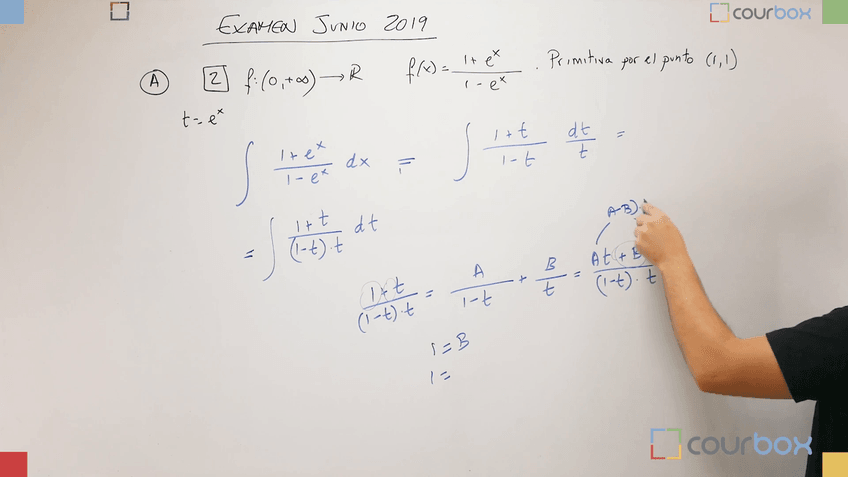 courbox
EXAMEN JUNIO 2019
A 2 f:(0,+∞) → ℝ f(x) = (1+e^x)/(1-e^x) . Primitiva por el punto (1,1)
t = e^x
∫ (1+e^x)/(1-e^x) dx = ∫ (1+t)/(1-t) dt/t =
= ∫ (1+t)/((1-t)·t) dt
A-B)·
(1+t)/((1-t)·t) = A/(1-t) + B/t = (At+B)/((1-t)·t)
1 = B
1 =
courbox